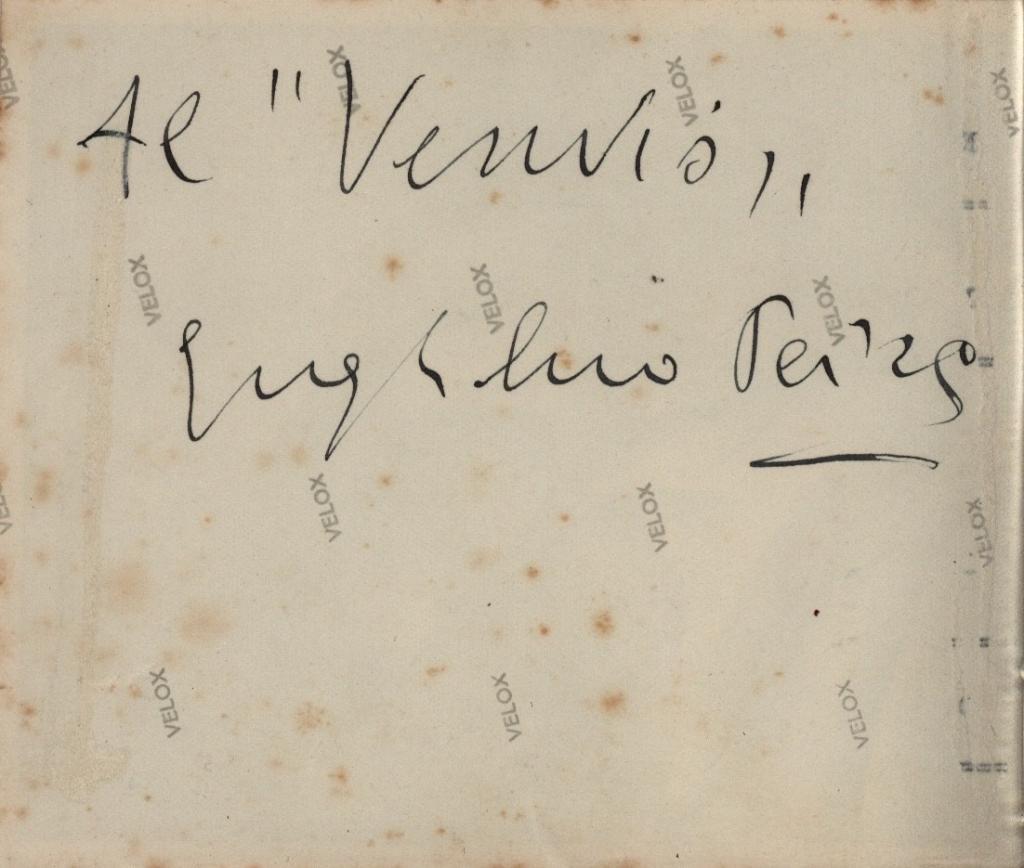 VELOX VELOX VELOX VELOX
Al "Vesuvio,,
VELOX VELOX VELOX
Guglielmo Peirce
VELOX VELOX VELOX
VELOX VELOX VELOX